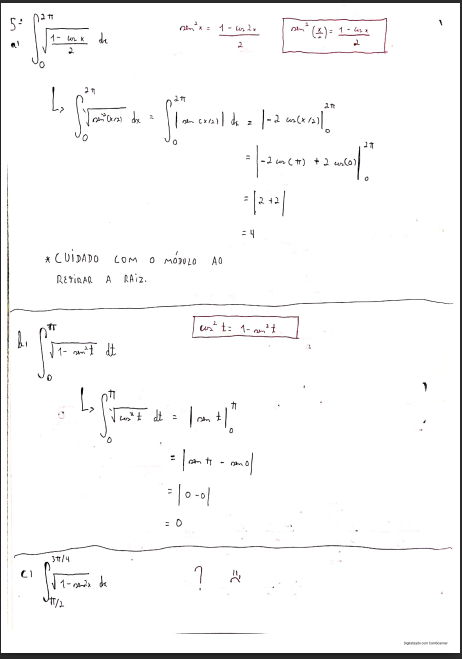 5ª a) ∫₀^{2π} √((1 - cos x)/2) dx    sen²x = (1 - cos 2x)/2    sen²(x/2) = (1 - cos x)/2
↳ ∫₀^{2π} √(sen²(x/2)) dx = ∫₀^{2π} |sen (x/2)| dx = |-2 cos(x/2)|₀^{2π}
= |-2 cos(π) + 2 cos(0)|₀^{2π}
= |2 + 2|
= 4
* CUIDADO COM O MÓDULO AO
RETIRAR A RAIZ.
b) ∫₀^{π} √(1 - sen²t) dt    cos²t = 1 - sen²t
↳ ∫₀^{π} √(cos²t) dt = |sen t|₀^{π}
= |sen π - sen 0|
= |0 - 0|
= 0
c) ∫_{π/2}^{3π/4} √(1 - sen2x) dx    ? :(
Digitalizado com CamScanner